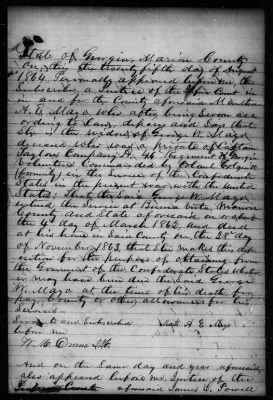 State of Georgia, Marion County
On this the twenty fifth day of August
1864 Personally appeared before me, the
Subscriber, a Justice of the Court
in and for the County aforesaid
A. E. Mayo who after being Sworn according
to law, depose and Say that
She is the widow of George W. Mayo
deceased who was a private of Captain
Taylors Company K. 46 Regiment of Georgia
Volunteers Commanded by Colonel Colquitt
(formerly) in the Service of the Confederate
States in the present war with the United
States; that the said George W. Mayo
entered the Service at Buena Vista Marion
County and State aforesaid on or about
the 4 day of March 1862 and died
at his home in Said County on the 28th day
of November 1863, that She makes this deposition
for the purpose of obtaining from
the Government of the Confederate States whatever
may have been due the said George
W. Mayo at the time of his death, for
pay, bounty or other allowances for his
Services.
Sworn to and Subscribed A E Mayo
before me
W. M.
And on the Same day and year aforesaid
also appeared before me Justice of the
aforesaid James L. Powell